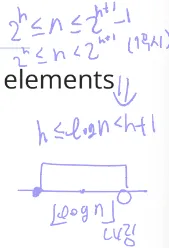 2^h ≤ n ≤ 2^{h+1} - 1
2^h ≤ n < 2^{h+1}
elements
h ≤ log n < h+1
⌊log n⌋